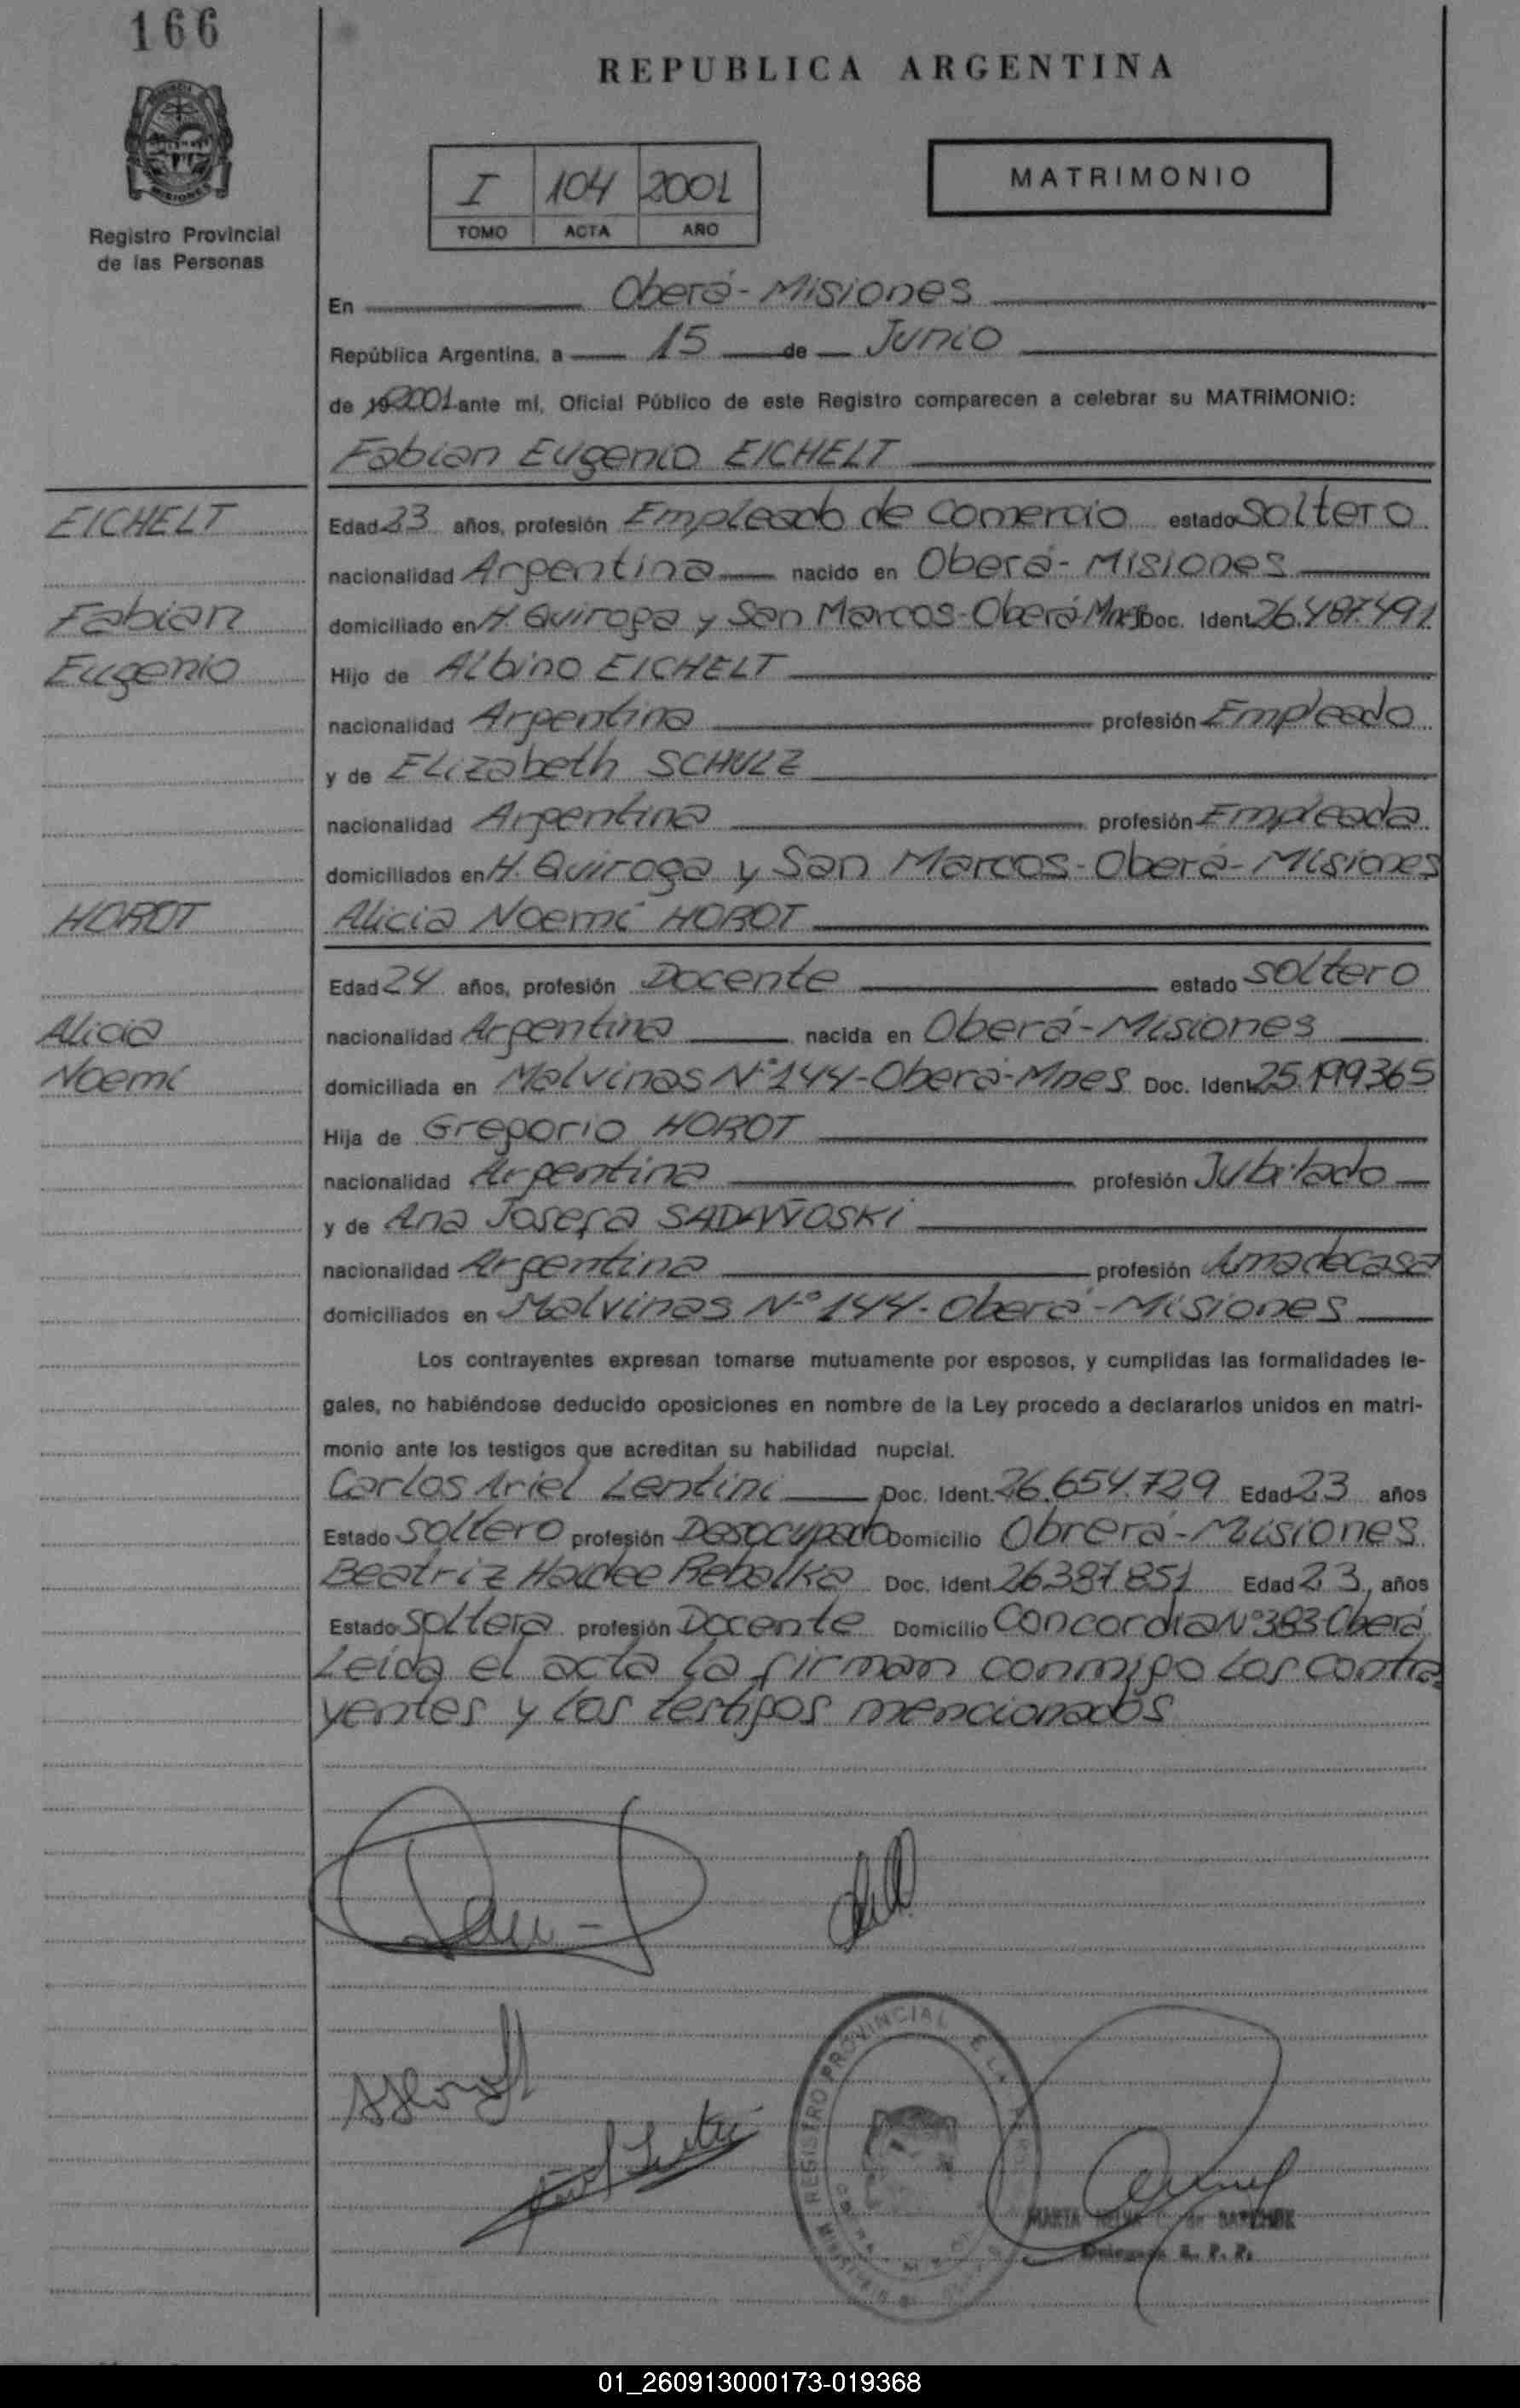 166
REPUBLICA ARGENTINA
MISIONES
Registro Provincial
de las Personas
I 104 2001
TOMO ACTA AÑO
MATRIMONIO
En Oberá - Misiones
República Argentina, a 15 de Junio
de 19 2001 ante mí, Oficial Público de este Registro comparecen a celebrar su MATRIMONIO:
Fabian Eugenio EICHELT
EICHELT
Edad 23 años, profesión Empleado de Comercio estado Soltero
nacionalidad Argentina nacido en Oberá - Misiones
Fabian
domiciliado en H. Quiroga y San Marcos - Oberá Mnes Doc. Ident. 26.487.491
Eugenio
Hijo de Albino EICHELT
nacionalidad Argentina profesión Empleado
y de Elizabeth SCHULZ
nacionalidad Argentina profesión Empleada
domiciliados en H. Quiroga y San Marcos - Oberá - Misiones
HOROT
Alicia Noemí HOROT
Edad 24 años, profesión Docente estado soltero
Alicia
nacionalidad Argentina nacida en Oberá - Misiones
Noemí
domiciliada en Malvinas Nº 144 - Oberá - Mnes Doc. Ident. 25.199365
Hija de Gregorio HOROT
nacionalidad Argentina profesión Jubilado
y de Ana Josefa
nacionalidad Argentina profesión Ama de casa
domiciliados en Malvinas Nº 144 - Oberá - Misiones
Los contrayentes expresan tomarse mutuamente por esposos, y cumplidas las formalidades le-
gales, no habiéndose deducido oposiciones en nombre de la Ley procedo a declararlos unidos en matri-
monio ante los testigos que acreditan su habilidad nupcial.
Carlos Ariel Lentini Doc. Ident. 26.654.729 Edad 23 años
Estado Soltero profesión Desocupado Domicilio Obrera - Misiones
Beatriz Haidee Rebalka Doc. Ident. 26387.851 Edad 23 años
Estado Soltera profesión Docente Domicilio Concordia Nº 383 Oberá
Leida el acta la firman conmigo los contra
yentes y los testigos mencionados
REGISTRO PROVINCIAL
MARTA
R. P. P.
01_260913000173-019368